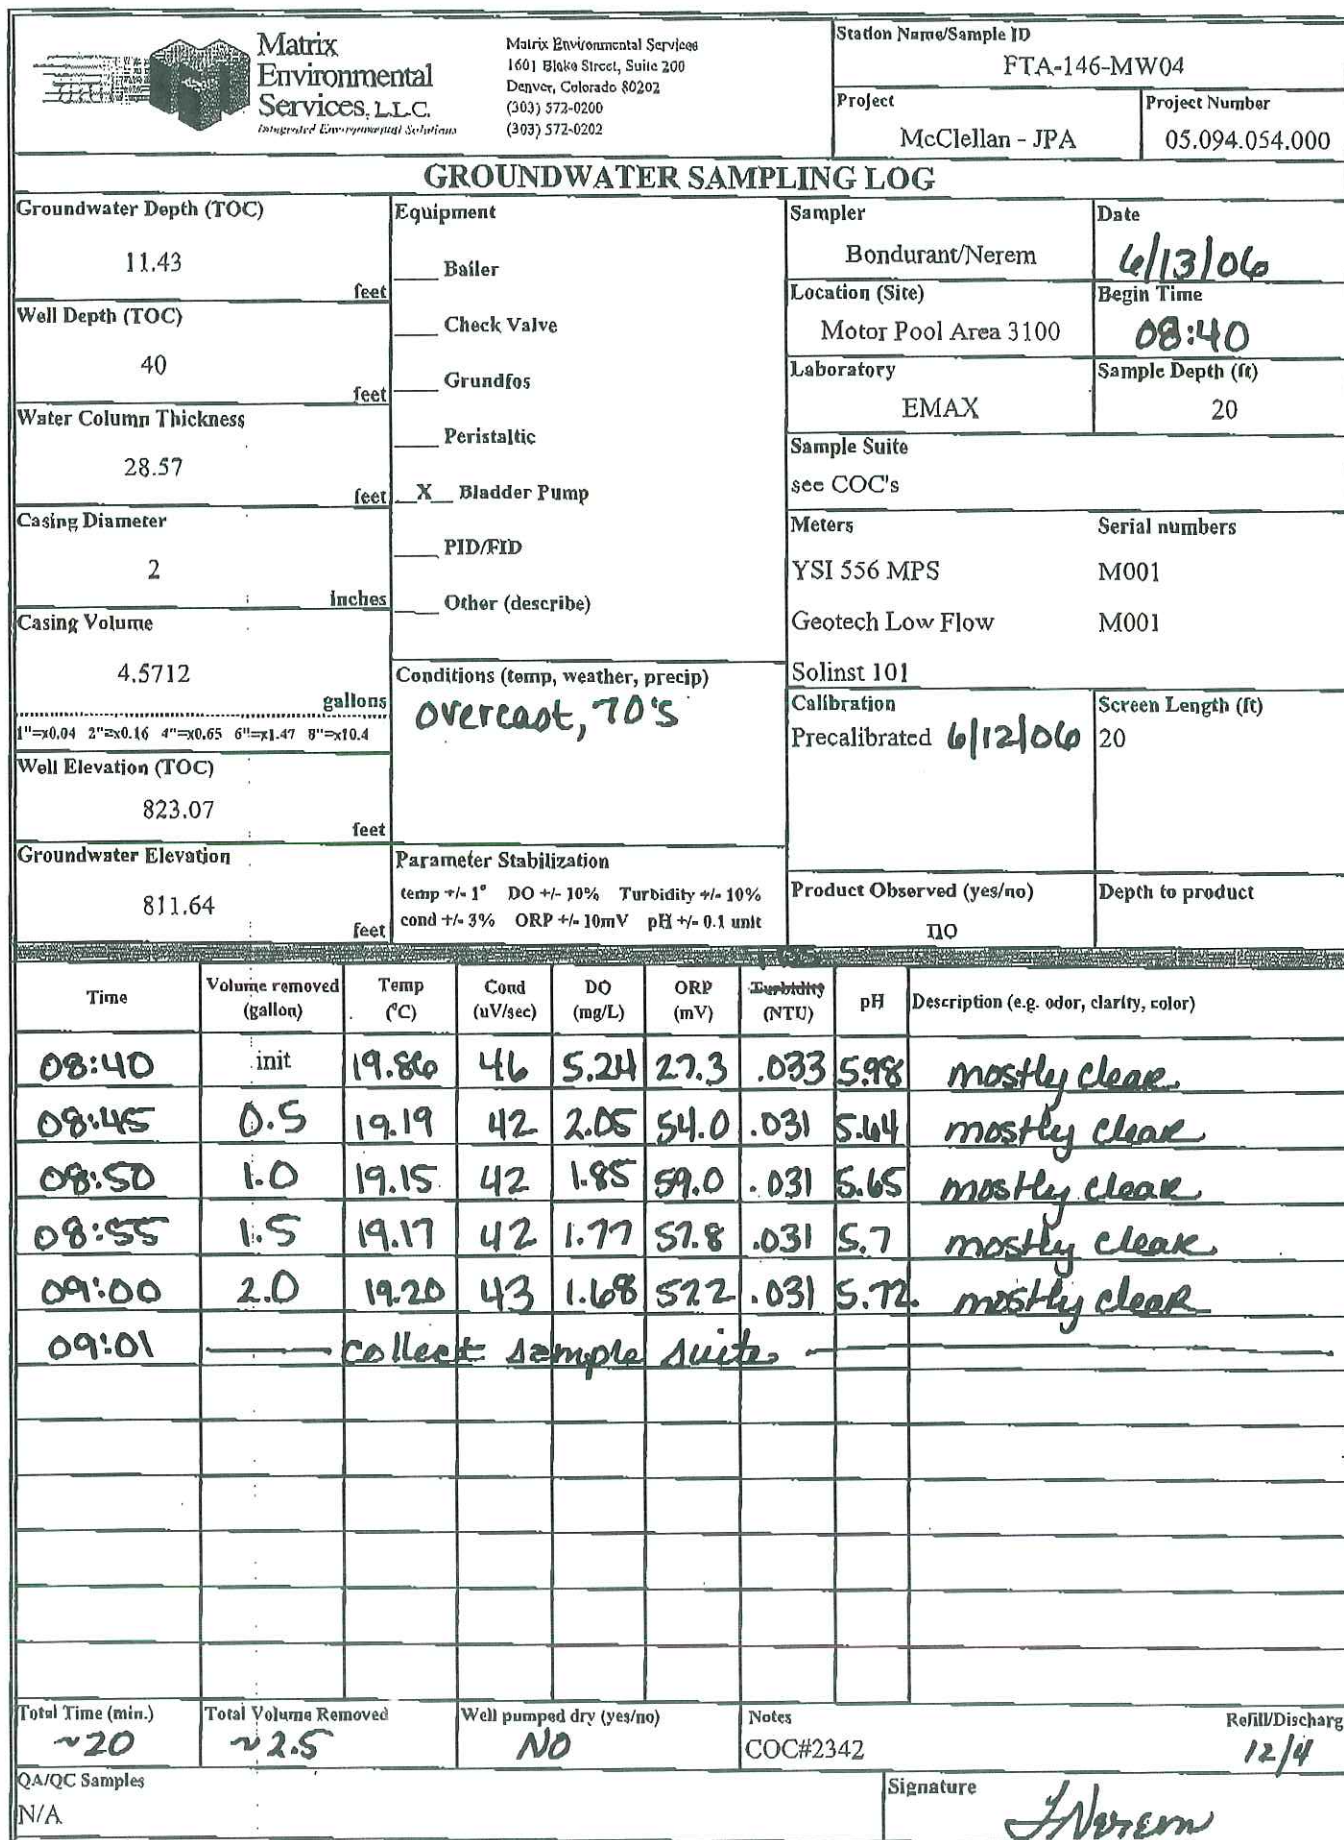 Matrix
Environmental
Services, L.L.C.
Integrated Environmental Solutions
Matrix Environmental Services
1601 Blake Street, Suite 200
Denver, Colorado 80202
(303) 572-0200
(303) 572-0202
Station Name/Sample ID
FTA-146-MW04
Project
McClellan - JPA
Project Number
05.094.054.000
GROUNDWATER SAMPLING LOG
Groundwater Depth (TOC)
11.43
feet
Well Depth (TOC)
40
feet
Water Column Thickness
28.57
feet
Casing Diameter
2
inches
Casing Volume
4.5712
gallons
1"=x0.04 2"=x0.16 4"=x0.65 6"=x1.47 8"=x10.4
Well Elevation (TOC)
823.07
feet
Groundwater Elevation
811.64
feet
Equipment
___ Bailer
___ Check Valve
___ Grundfos
___ Peristaltic
__X__ Bladder Pump
___ PID/FID
___ Other (describe)
Conditions (temp, weather, precip)
overcast, 70's
Parameter Stabilization
temp +/- 1° DO +/- 10% Turbidity +/- 10%
cond +/- 3% ORP +/- 10mV pH +/- 0.1 unit
Sampler
Bondurant/Nerem
Date
6/13/06
Location (Site)
Motor Pool Area 3100
Begin Time
08:40
Laboratory
EMAX
Sample Depth (ft)
20
Sample Suite
see COC's
Meters Serial numbers
YSI 556 MPS M001
Geotech Low Flow M001
Solinst 101
Calibration
Precalibrated 6/12/06
Screen Length (ft)
20
Product Observed (yes/no)
no
Depth to product
Time Volume removed (gallon) Temp (°C) Cond (uV/sec) DO (mg/L) ORP (mV) Turbidity (NTU) pH Description (e.g. odor, clarity, color)
08:40 init 19.86 46 5.24 27.3 .033 5.98 mostly clear
08:45 0.5 19.19 42 2.05 54.0 .031 5.64 mostly clear
08:50 1.0 19.15 42 1.85 59.0 .031 5.65 mostly clear
08:55 1.5 19.17 42 1.77 57.8 .031 5.7 mostly clear
09:00 2.0 19.20 43 1.68 52.2 .031 5.72 mostly clear
09:01 collect sample suite
Total Time (min.)
~20
Total Volume Removed
~2.5
Well pumped dry (yes/no)
NO
Notes
COC#2342
Refill/Discharg
12/4
QA/QC Samples
N/A
Signature
J Nerem